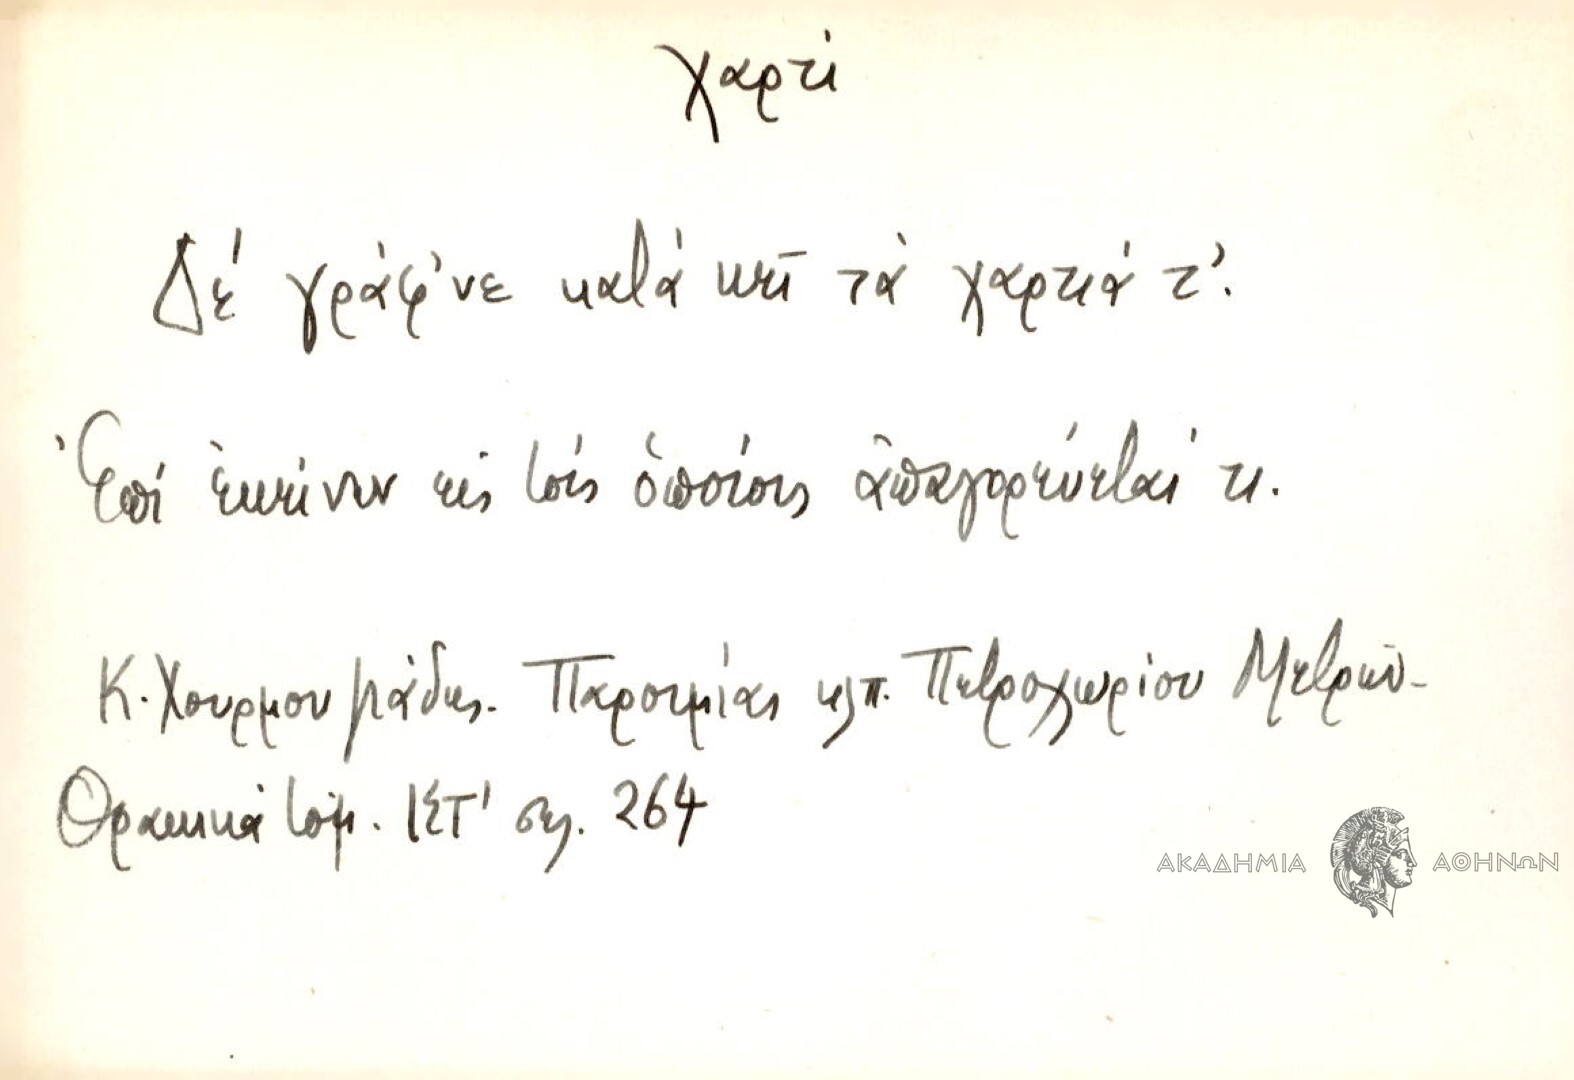 χαρτί
Δέ γράφ'νε κατά κεῖ τὰ χαρτιά τ'.
Ἐπί ἐκείνων εἰς τούς ὁποίους ἀπαγορεύεταί τι.
Κ. Χουρμουζιάδης. Παροιμίας κλπ. Πετροχωρίου Μετρῶν-
Θρακικά τόμ. ΙΣΤ' σελ. 264
ΑΚΑΔΗΜΙΑ ΑΘΗΝΩΝ